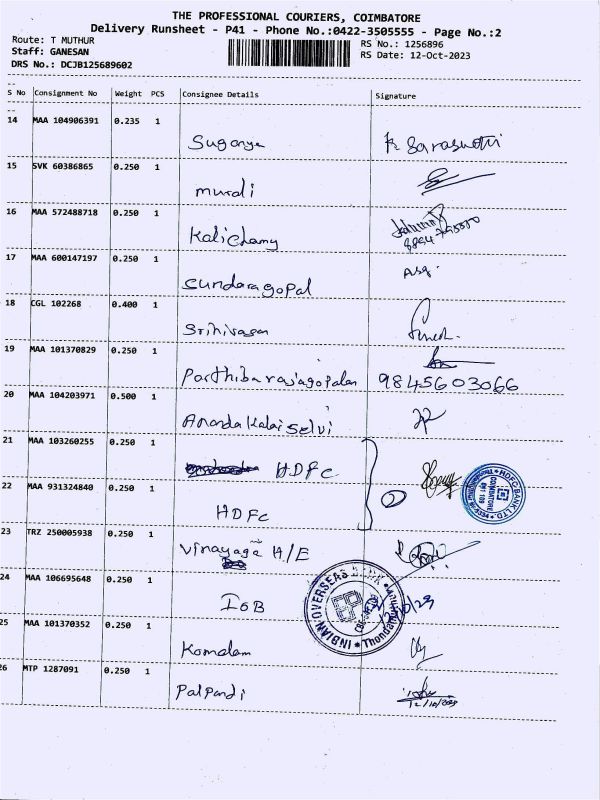 THE PROFESSIONAL COURIERS, COIMBATORE
Delivery Runsheet - P41 - Phone No.:0422-3505555 - Page No.:2
Route: T MUTHUR
Staff: GANESAN
DRS No.: DCJB125689602
RS No.: 1256896
RS Date: 12-Oct-2023
S No Consignment No Weight PCS Consignee Details Signature
14 MAA 104906391 0.235 1 Sugonya K. Saraswathi
15 SVK 60386865 0.250 1 murali
16 MAA 572488718 0.250 1 Kalichamy
17 MAA 600147197 0.250 1 Sundaragopal
18 CGL 102268 0.400 1 Srinivasan
19 MAA 101370829 0.250 1 Parthiba rajagopalan 9845603066
20 MAA 104203971 0.500 1 Ananda Kalai selvi
21 MAA 103260255 0.250 1 HDFC
22 MAA 931324840 0.250 1 HDFC 2
HDFC BANK LTD
COIMBATORE
23 TRZ 250005938 0.250 1 Vinayaga H/E
24 MAA 106695648 0.250 1 IOB
INDIAN OVERSEAS BANK
25 MAA 101370352 0.250 1 Komalam
26 MTP 1287091 0.250 1 Palpandi
12/10/2023